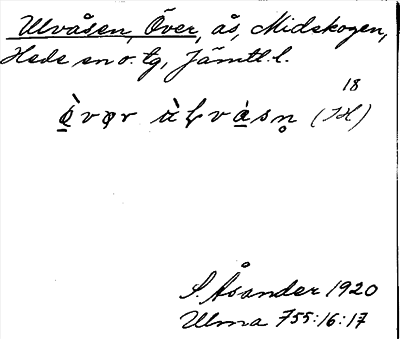 Ulvåsen, Över, ås, Midskogen,
Hede sn o. tg, Jämtl. l.
18
ö̀vər ùlvàsn̥ (JH)
S. Åsander 1920
Ulma 755:16:17